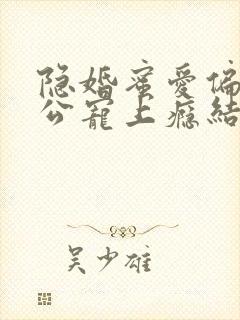 隐婚蜜爱偏
公宠上瘾结
吴少雄